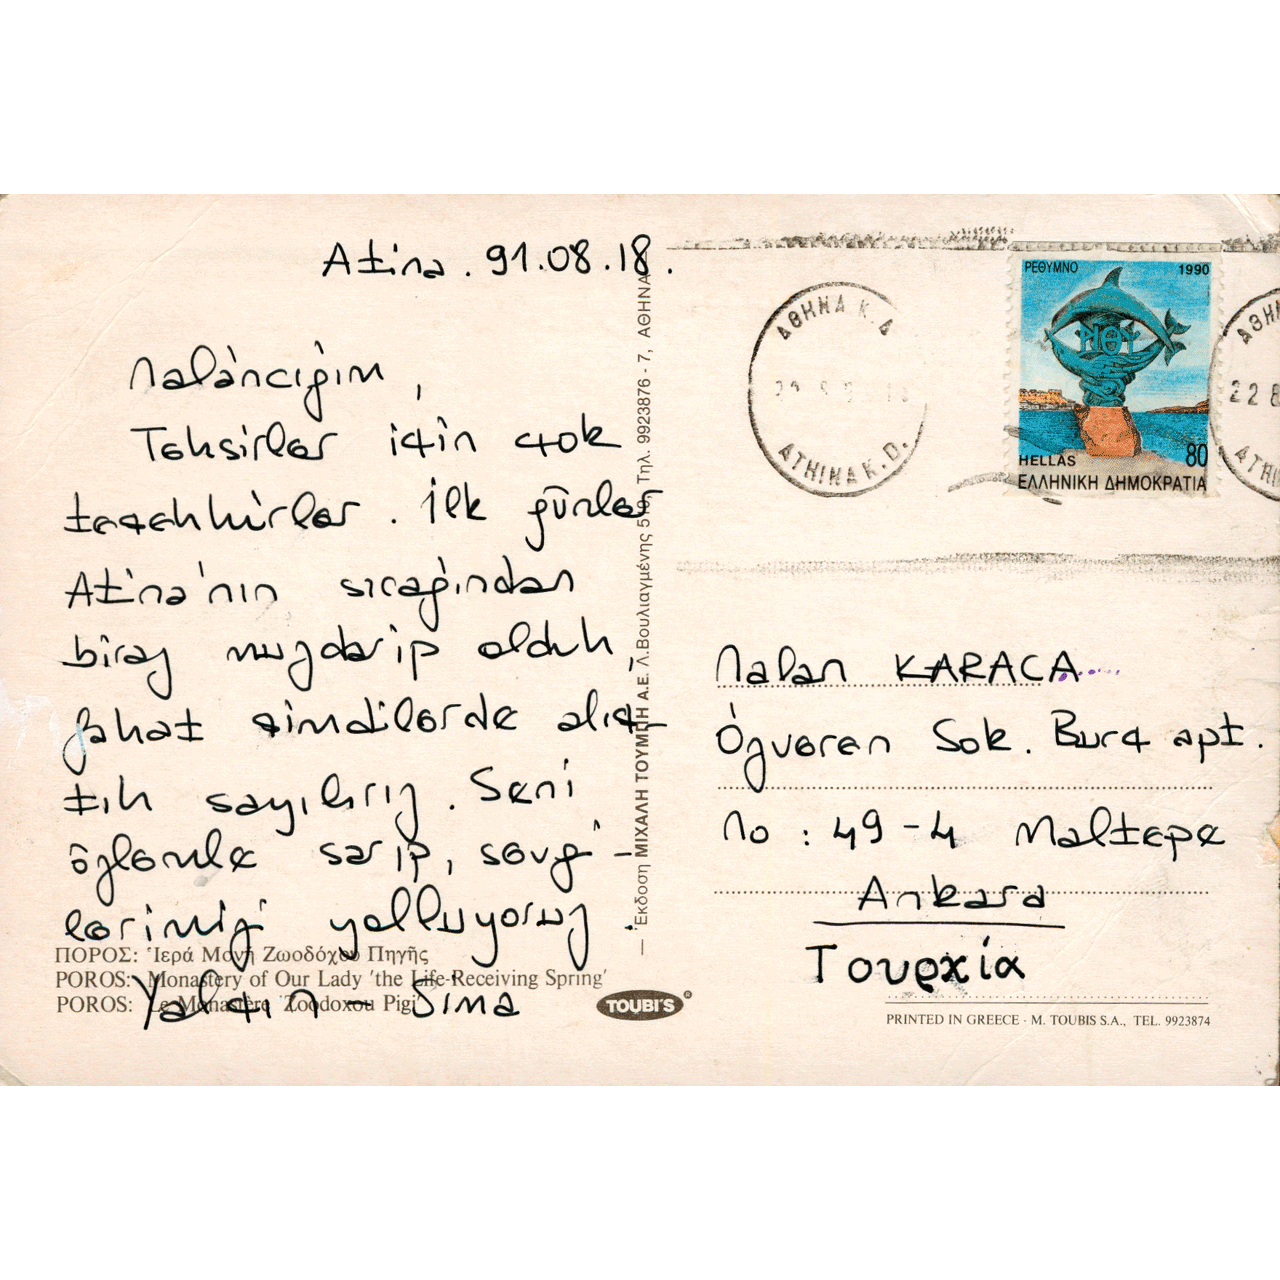 Atina. 91.08.18.
Nalâncığım,
Teksirler için çok
teşekkürler. İlk günler
Atina'nın sıcağından
biraz muzdarip olduk,
fakat şimdilerde alış-
tık sayılırız. Seni
özlemle sarıp, sevgi-
lerimizi yolluyoruz.
Yalçın - Sima
ΠΟΡΟΣ: Ἱερά Μονή Ζωοδόχου Πηγῆς
POROS: Monastery of Our Lady 'the Life-Receiving Spring'
POROS: Le Monastère Zoodoxou Pigi
TOUBI'S
— Ἔκδοση ΜΙΧΑΛΗ ΤΟΥΜΠΗ Α.Ε. Λ.Βουλιαγμένης 519, Τηλ. 9923876 - 7, ΑΘΗΝΑ
ΑΘΗΝΑ Κ.Δ
ATHINA K.D.
ΡΕΘΥΜΝΟ 1990
ΡΕΘΥ
80
HELLAS
ΕΛΛΗΝΙΚΗ ΔΗΜΟΚΡΑΤΙΑ
ΑΘΗΝ
22 8
ATHIN
Nalan KARACA
Öğveren Sok. Burç apt.
No : 49-4 Maltepe
Ankara
Τουρκία
PRINTED IN GREECE - M. TOUBIS S.A., TEL. 9923874